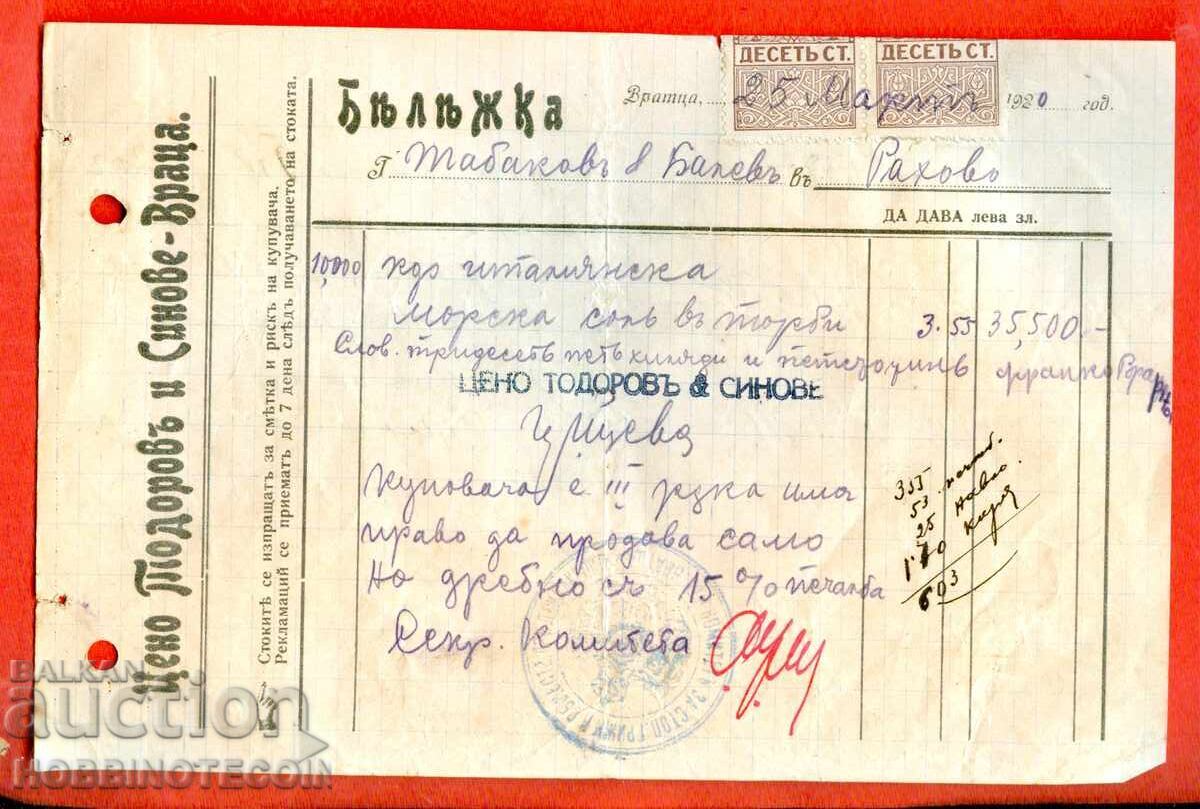 Цено Тодоровъ и Синове-Враца.
Стокитѣ се изпращатъ за смѣтка и рискъ на купувача.
Рекламаций се приематъ до 7 дена слѣдъ получаването на стоката.
ДЕСЕТЬ СТ. ДЕСЕТЬ СТ.
Бѣлѣжка
Вратца, 25 Мартъ 1920 год.
Г Табаковъ & Балевъ въ Рахово
ДА ДАВА лева зл.
10,000 кгр италиянска
морска соль въ торби 3.55 35,500.-
Слов. тридесеть петь хиляди и петстотинъ франко
ЦЕНО ТОДОРОВЪ & СИНОВЕ
Куповача е III рѫка има
право да продава само
на дребно съ 15% печалба
Секр. Комитета
355
53
25
170
603
BALKAN
auction
HOBBINOTECOIN